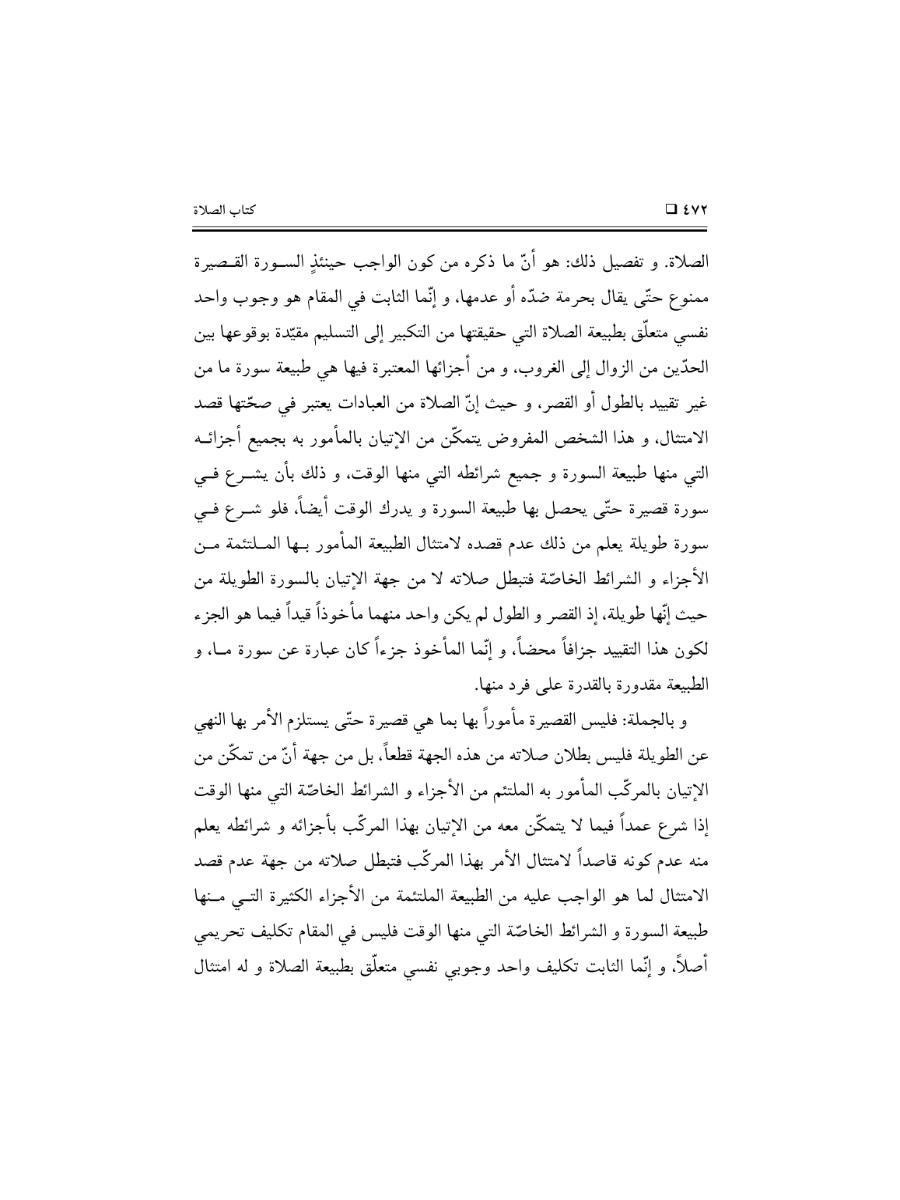 ٤٧٢ ❑ كتاب الصلاة
الصلاة. و تفصيل ذلك: هو أنّ ما ذكره من كون الواجب حينئذٍ السـورة القـصيرة
ممنوع حتّى يقال بحرمة ضدّه أو عدمها، و إنّما الثابت في المقام هو وجوب واحد
نفسي متعلّق بطبيعة الصلاة التي حقيقتها من التكبير إلى التسليم مقيّدة بوقوعها بين
الحدّين من الزوال إلى الغروب، و من أجزائها المعتبرة فيها هي طبيعة سورة ما من
غير تقييد بالطول أو القصر، و حيث إنّ الصلاة من العبادات يعتبر في صحّتها قصد
الامتثال، و هذا الشخص المفروض يتمكّن من الإتيان بالمأمور به بجميع أجزائـه
التي منها طبيعة السورة و جميع شرائطه التي منها الوقت، و ذلك بأن يشـرع فـي
سورة قصيرة حتّى يحصل بها طبيعة السورة و يدرك الوقت أيضاً، فلو شـرع فـي
سورة طويلة يعلم من ذلك عدم قصده لامتثال الطبيعة المأمور بـها المـلتئمة مـن
الأجزاء و الشرائط الخاصّة فتبطل صلاته لا من جهة الإتيان بالسورة الطويلة من
حيث إنّها طويلة، إذ القصر و الطول لم يكن واحد منهما مأخوذاً قيداً فيما هو الجزء
لكون هذا التقييد جزافاً محضاً، و إنّما المأخوذ جزءاً كان عبارة عن سورة مـا، و
الطبيعة مقدورة بالقدرة على فرد منها.
و بالجملة: فليس القصيرة مأموراً بها بما هي قصيرة حتّى يستلزم الأمر بها النهي
عن الطويلة فليس بطلان صلاته من هذه الجهة قطعاً، بل من جهة أنّ من تمكّن من
الإتيان بالمركّب المأمور به الملتئم من الأجزاء و الشرائط الخاصّة التي منها الوقت
إذا شرع عمداً فيما لا يتمكّن معه من الإتيان بهذا المركّب بأجزائه و شرائطه يعلم
منه عدم كونه قاصداً لامتثال الأمر بهذا المركّب فتبطل صلاته من جهة عدم قصد
الامتثال لما هو الواجب عليه من الطبيعة الملتئمة من الأجزاء الكثيرة التـي مـنها
طبيعة السورة و الشرائط الخاصّة التي منها الوقت فليس في المقام تكليف تحريمي
أصلاً، و إنّما الثابت تكليف واحد وجوبي نفسي متعلّق بطبيعة الصلاة و له امتثال